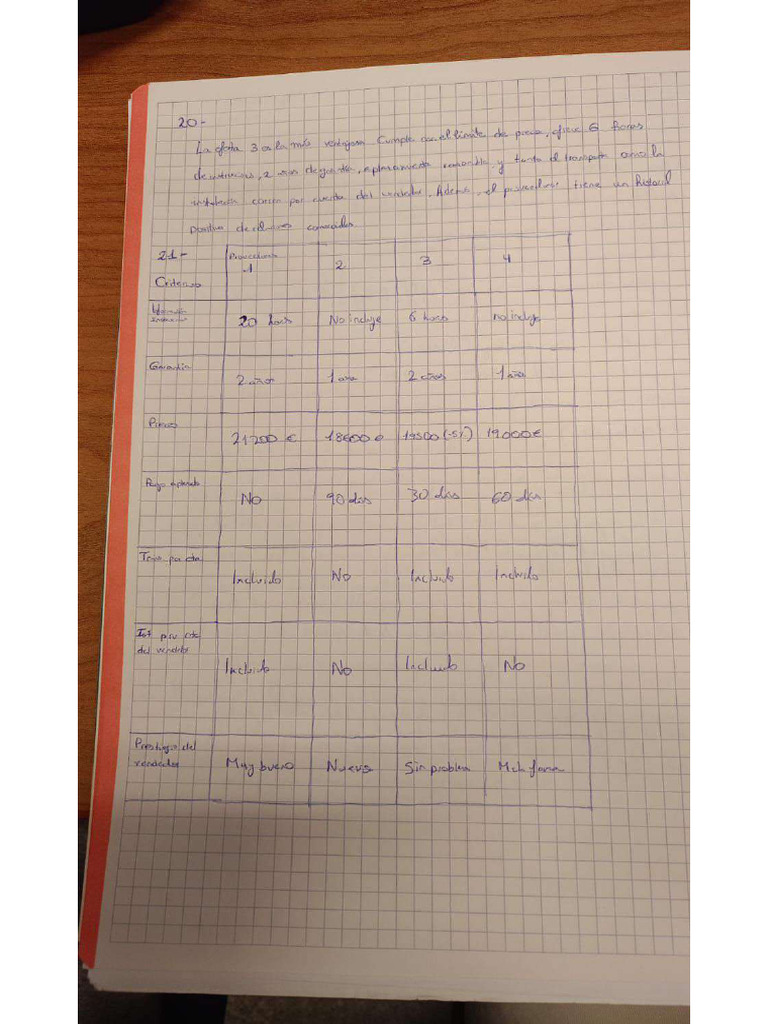 20-
La oferta 3 es la más ventajosa. Cumple con el límite de precio, ofrece 6 horas
de instrucción, 2 años de garantía, aplazamiento razonable y tanto el transporte como la
instalación corren por cuenta del vendedor. Además, el proveedor tiene un historial
positivo de relaciones comerciales
21- Proveedores
Criterios 1 2 3 4
20 horas No incluye 6 horas no incluye
Garantía 2 años 1 año 2 años 1 año
Precio 21200 € 18600 € 19500 (-5%) 19000 €
Pago aplazado No 90 días 30 días 60 días
Incluido No Incluido Incluido
del vendedor Incluido No Incluido No
Prestigio del
vendedor Muy bueno Nuevo Sin problema Mala fama